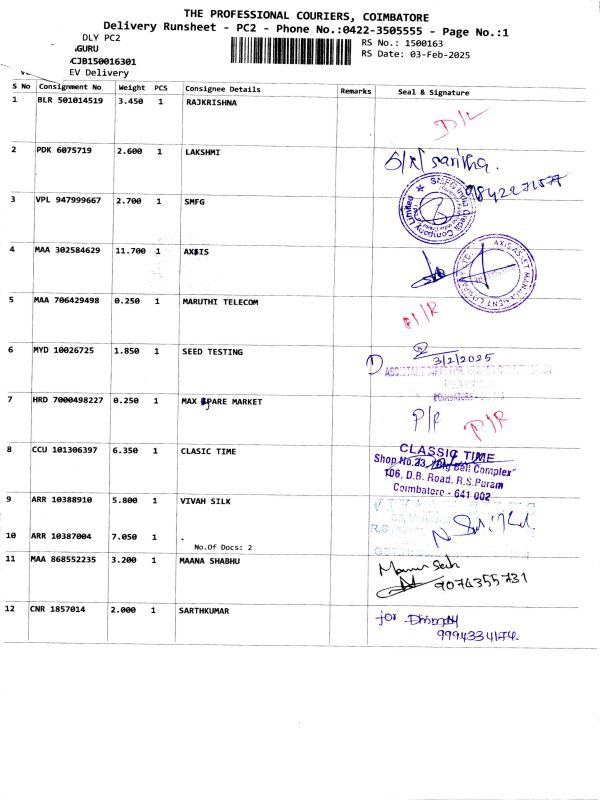 THE PROFESSIONAL COURIERS, COIMBATORE
Delivery Runsheet - PC2 - Phone No.:0422-3505555 - Page No.:1
DLY PC2
GURU
CJB150016301
EV Delivery
RS No.: 1500163
RS Date: 03-Feb-2025
S No Consignment No Weight PCS Consignee Details Remarks Seal & Signature
1 BLR 501014519 3.450 1 RAJKRISHNA D/L
2 PDK 6075719 2.600 1 LAKSHMI S/R/ saritha.
3 VPL 947999667 2.700 1 SMFG
4 MAA 302584629 11.700 1 AXSIS
AXIS ASSET MANAGEMENT COMPANY LTD.
5 MAA 706429498 0.250 1 MARUTHI TELECOM
6 MYD 10026725 1.850 1 SEED TESTING 3/2/2025
7 HRD 7000498227 0.250 1 MAX SPARE MARKET P/R P/R
8 CCU 101306397 6.350 1 CLASIC TIME
CLASSIC TIME
Shop No.23, "Big Ball Complex"
106, D.B. Road, R.S.Puram
Coimbatore - 641 002
9 ARR 10388910 5.800 1 VIVAH SILK
10 ARR 10387004 7.050 1 .
No.Of Docs: 2
11 MAA 868552235 3.200 1 MAANA SHABHU
9074355731
12 CNR 1857014 2.000 1 SARTHKUMAR for
9994334174